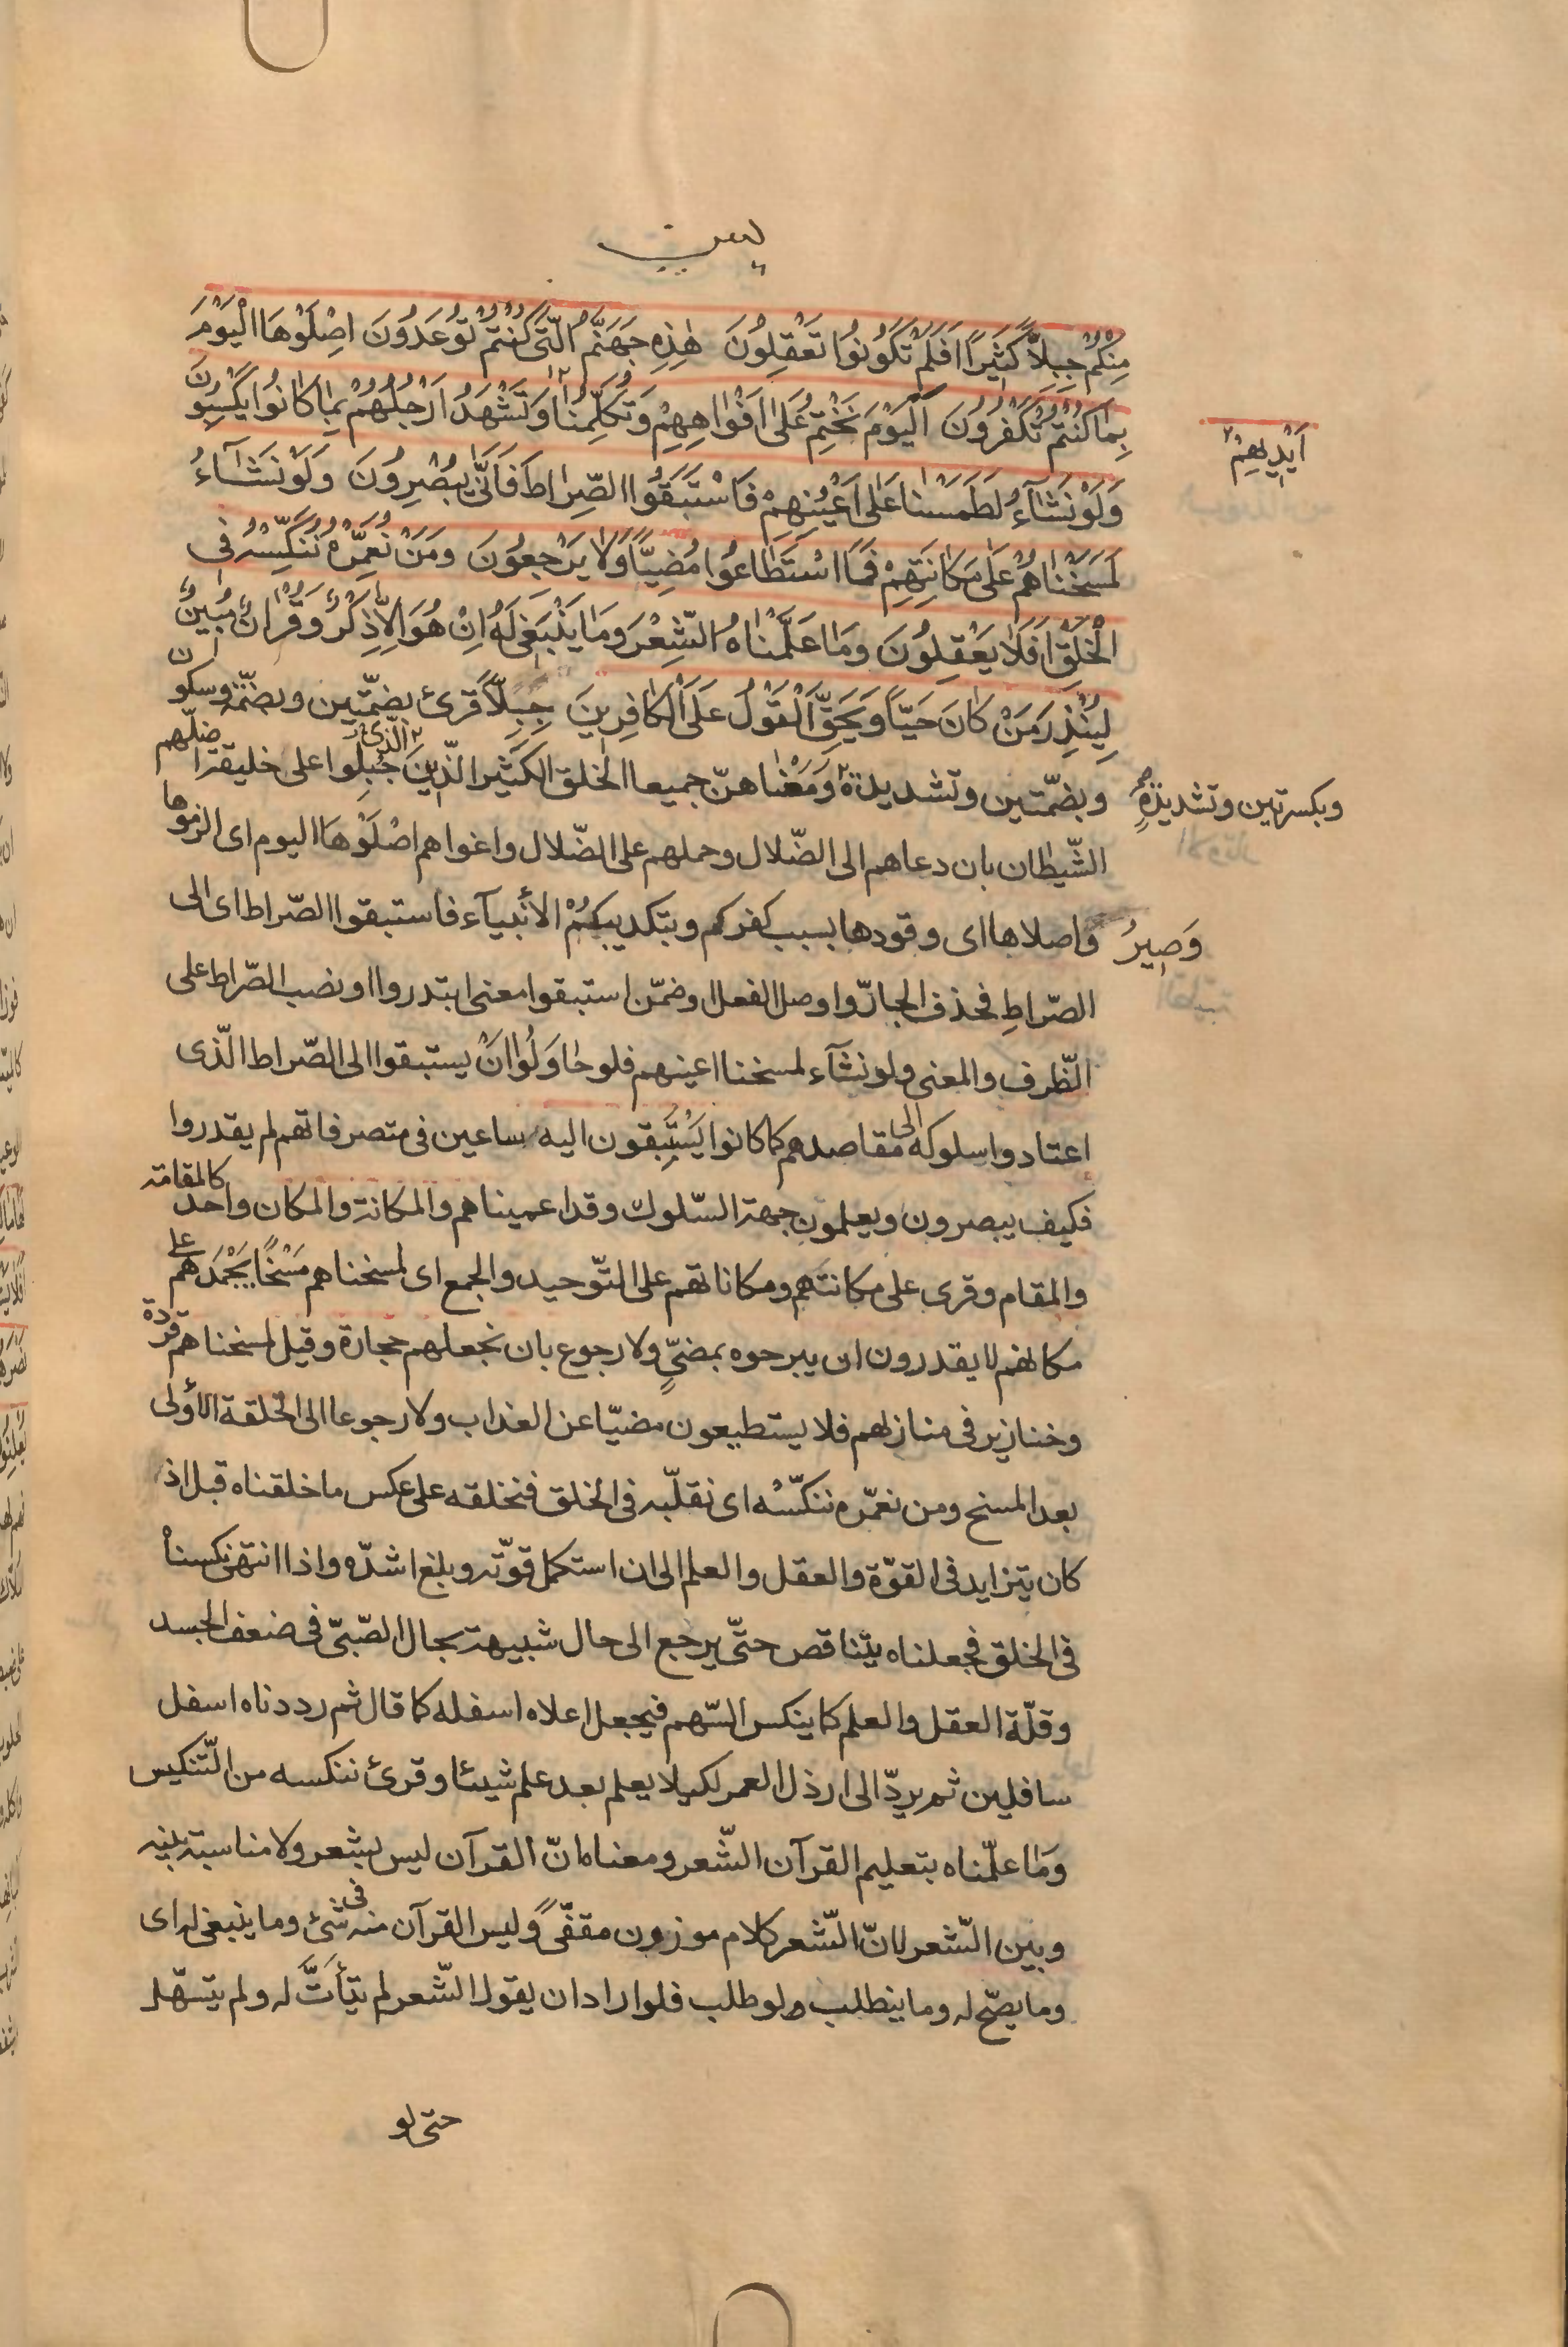 يس
مِنْكُمْ جِبِلًّا كَثِيرًا اَفَلَمْ تَكُونُوا تَعْقِلُونَ هٰذِهِ جَهَنَّمُ الَّتِى كُنْتُمْ تُوعَدُونَ اِصْلَوْهَا الْيَوْمَ
بِمَا كُنْتُمْ تَكْفُرُونَ اَلْيَوْمَ نَخْتِمُ عَلٰى اَفْوَاهِهِمْ وَتُكَلِّمُنَا وَتَشْهَدُ اَرْجُلُهُمْ بِمَا كَانُوا يَكْسِبُونَ
اَيْدِيهِمْ
وَلَوْ نَشَآءُ لَطَمَسْنَا عَلٰى اَعْيُنِهِمْ فَاسْتَبَقُوا الصِّرَاطَ فَاَنّٰى يُبْصِرُونَ وَلَوْ نَشَآءُ
لَمَسَخْنَاهُمْ عَلٰى مَكَانَتِهِمْ فَمَا اسْتَطَاعُوا مُضِيًّا وَلَا يَرْجِعُونَ وَمَنْ نُعَمِّرْهُ نُنَكِّسْهُ فِى
الْخَلْقِ اَفَلَا يَعْقِلُونَ وَمَا عَلَّمْنَاهُ الشِّعْرَ وَمَا يَنْبَغِى لَهُ اِنْ هُوَ اِلَّا ذِكْرٌ وَقُرْاٰنٌ مُبِينٌ
لِيُنْذِرَ مَنْ كَانَ حَيًّا وَيَحِقَّ الْقَوْلُ عَلَى الْكَافِرِينَ جِبِلًّا قرئ بضمّتين وبضمّة وسكون
وبضمّتين وتشديدة ومَعْنَاهنّ جميعا الخلق الكثير الّذين جُبِلوا على خليقة اضلّهم
الّذى
وبكسرتين وتشديدةٍ
الشّيطان بان دعاهم الى الضّلال وحملهم على الضّلال واغواهم اصْلَوْهَا اليوم اى الزموها
وَصِيرُ
واصلاها اى وقودها بسبب كفركم وبتكذيبكُمْ الأنبيآء فاستبقوا الصّراط اى الى
الصّراطِ فحذف الجارّ واوصل الفعل او ضمّن استبقوا معنى ابتدروا او نصب الصّراط على
الظّرف والمعنى ولو نشآء لمسخنا اعينهم فلو حاوَلُوا انْ يستبقوا الى الصّراط الّذى
اعتادوا سلوكه الى مقاصدهم كما كانوا يَسْتَبِقون اليه ساعين فى متصرفاتهم لم يقدروا
فكيف يبصرون ويعلمون جهة السّلوك وقد اعميناهم والمكانة والمكان واحد كالمقامة
والمقام وقرى على مكانتهم ومكاناتهم على التّوحيد والجمع اى لمسخناهم مَسْخًا يَجْمَدهم على
مكانهم لا يقدرون ان يبرحوه بمضىٍّ ولا رجوع بان نجعلهم حجارة وقيل لمسخناهم قردة
وخنازير فى منازلهم فلا يستطيعون مضيّا عن العذاب ولا رجوعا الى الخلقة الأولى
بعد المسخ ومن نعمّره ننكّسْه اى نقلّبه فى الخلق فنخلقه على عكس ما خلقناه قبل اذ
كان يتزايد فى القوّة والعقل والعلم الى ان استكمل قوّته وبلغ اشدّه واذا انتهى نكسناه
فى الخلق فجعلناه يتناقص حتّى يرجع الى حال شبيهة بحال الصّبىّ فى ضعف الجسد
وقلّة العقل والعلم كما ينكس السّهم فيجعل اعلاه اسفله كما قال ثم رددناه اسفل
سافلين ثم يردّ الى ارذل العمر لكيلا يعلم بعد علم شيئا وقرئ ننكسه من التّنكيس
وَمَا علّمناه بتعليم القرآن الشّعر ومعناه انّ القرآن ليس بشعر ولا مناسبة بينه
وبين الشّعر لانّ الشّعر كلام موزون مقفّىً وليس القرآن منه فى شئ وما ينبغى له اى
وما يصحّ له وما ينطلب ولو طلب فلو اراد ان يقول الشّعر لم يتأتَّ له ولم يتسهّل
حتى لو